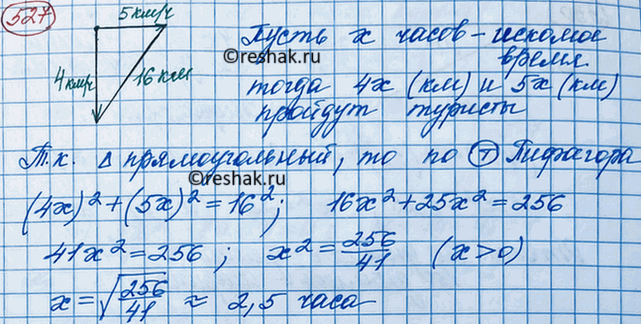 527
5 км/ч
4 км/ч
16 км
Пусть x часов - искомое
время.
©reshak.ru
тогда 4x (км) и 5x (км)
пройдут туристы
Т.к. Δ прямоугольный, то по Ⓣ Пифагора
©reshak.ru
(4x)² + (5x)² = 16²; 16x² + 25x² = 256
41x² = 256; x² = 256/41 (x>0)
x = √256/41 ≈ 2,5 часа
©reshak.ru